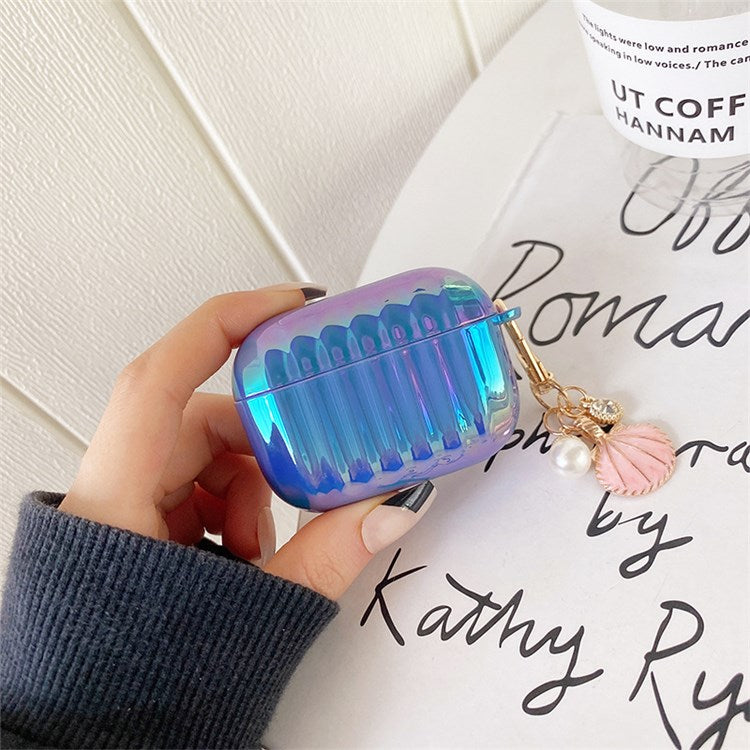 The lights were low and romance
speaking in low voices./ The can
UT COFF
HANNAM
Off
Roman
by
Kathy Ry